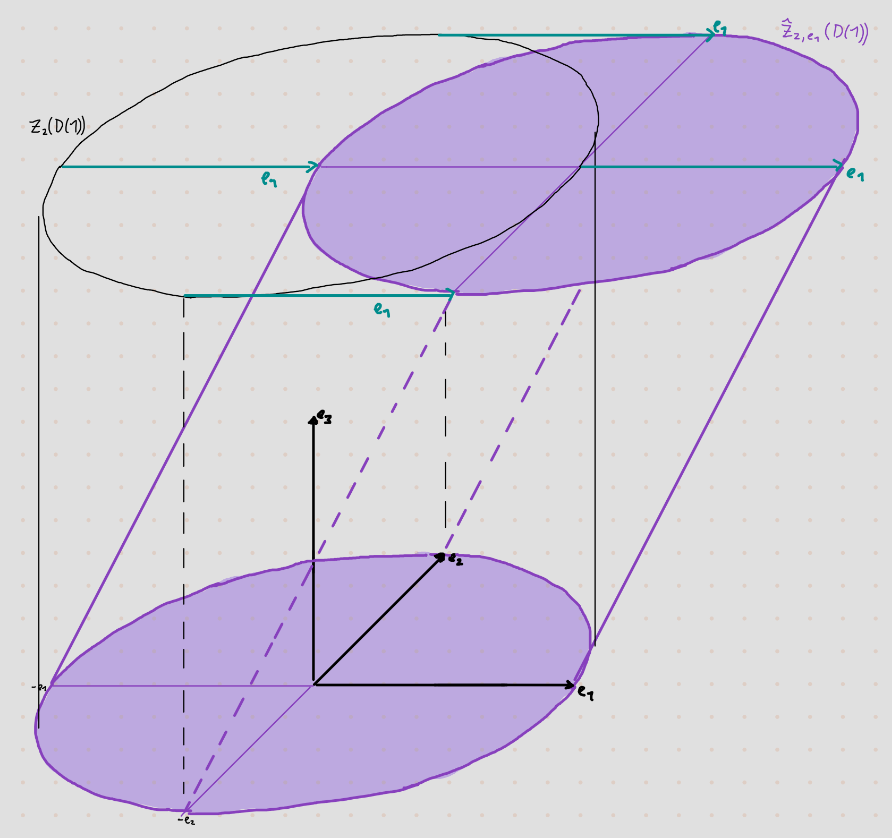 e₁
Ẑ₂,ₑ₁(D(1))
Z₂(D(1))
e₁
e₁
e₁
e₃
e₂
-e₁
e₁
-e₂